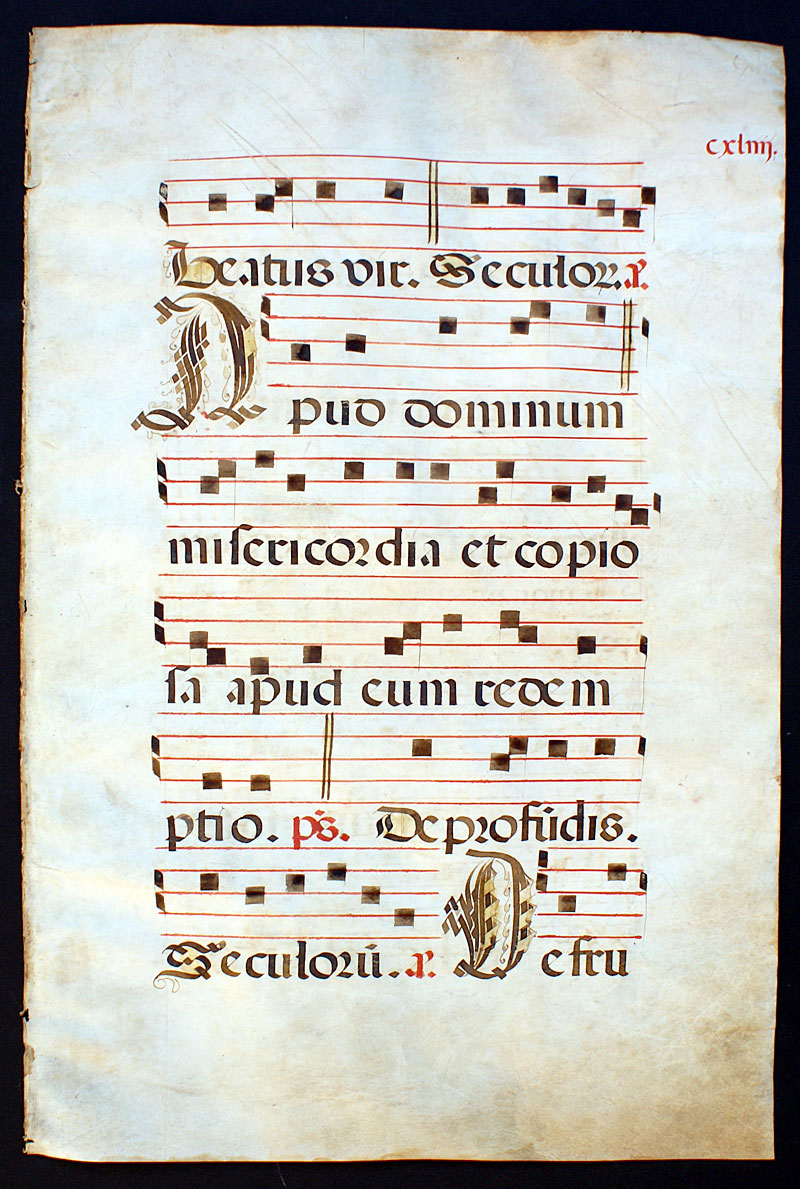 cxliiij.
Beatus vir. Seculoꝝ. a͞.
Apud dominum
misericordia et copio
sa apud eum redem
ptio. ps. De profūdis.
Seculorū. a͞. De fru